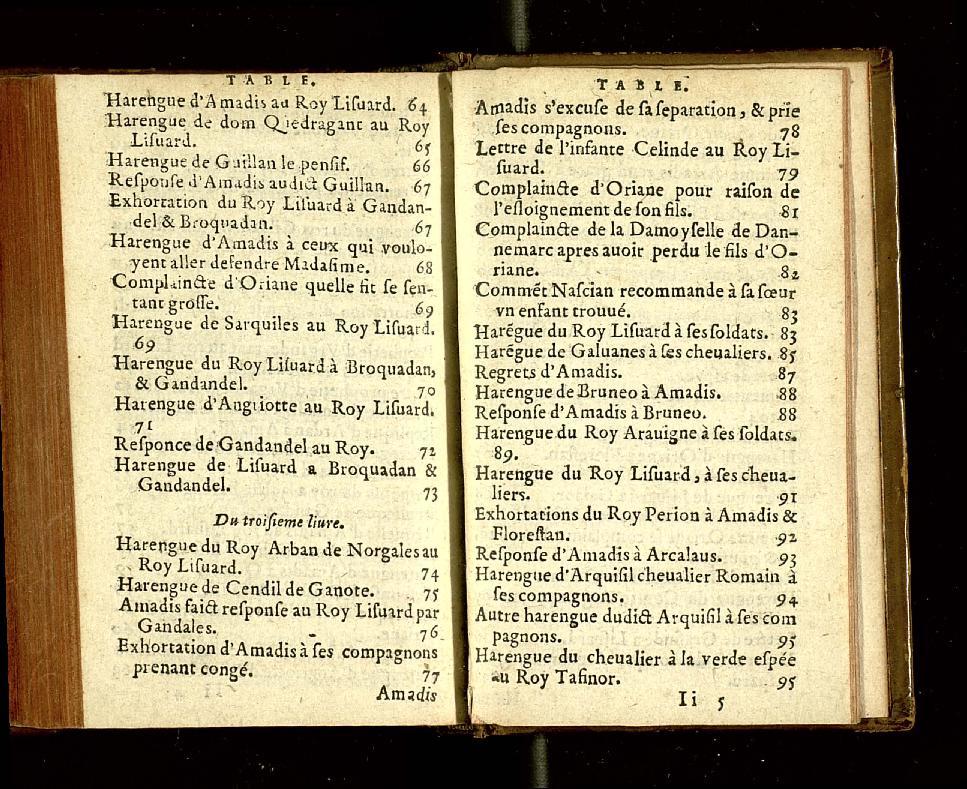 TABLE.
Harengue d'Amadis au Roy Liſuard. 64
Harengue de dom Quedragant au Roy
Liſuard. 65
Harengue de Guillan le penſif. 66
Reſponſe d'Amadis audict Guillan. 67
Exhortation du Roy Liſuard à Gandan-
del & Broquadan. 67
Harengue d'Amadis à ceux qui voulo-
yent aller defendre Madaſime. 68
Complaincte d'Oriane quelle fit ſe ſen-
tant groſſe. 69
Harengue de Sarquiles au Roy Liſuard.
69
Harengue du Roy Liſuard à Broquadan,
& Gandandel. 70
Harengue d'Angriotte au Roy Liſuard.
71
Reſponce de Gandandel au Roy. 72
Harengue de Liſuard a Broquadan &
Gandandel. 73
Du troiſieme liure.
Harengue du Roy Arban de Norgales au
Roy Liſuard. 74
Harengue de Cendil de Ganote. 75
Amadis faict reſponſe au Roy Liſuard par
Gandales. 76
Exhortation d'Amadis à ſes compagnons
prenant congé. 77
Amadis
TABLE.
Amadis s'excuſe de ſa ſeparation, & prie
ſes compagnons. 78
Lettre de l'infante Celinde au Roy Li-
ſuard. 79
Complaincte d'Oriane pour raiſon de
l'eſloignement de ſon fils. 81
Complaincte de la Damoyſelle de Dan-
nemarc apres auoir perdu le fils d'O-
riane. 82
Commét Naſcian recommande à ſa ſœur
vn enfant trouué. 83
Harégue du Roy Liſuard à ſes ſoldats. 83
Harégue de Galuanes à ſes cheualiers. 85
Regrets d'Amadis. 87
Harengue de Bruneo à Amadis. 88
Reſponſe d'Amadis à Bruneo. 88
Harengue du Roy Arauigne à ſes ſoldats.
89.
Harengue du Roy Liſuard, à ſes cheua-
liers. 91
Exhortations du Roy Perion à Amadis &
Floreſtan. 92
Reſponſe d'Amadis à Arcalaus. 93
Harengue d'Arquiſil cheualier Romain à
ſes compagnons. 94
Autre harengue dudict Arquiſil à ſes com
pagnons. 95
Harengue du cheualier à la verde eſpée
au Roy Tafinor. 95
Ii 5